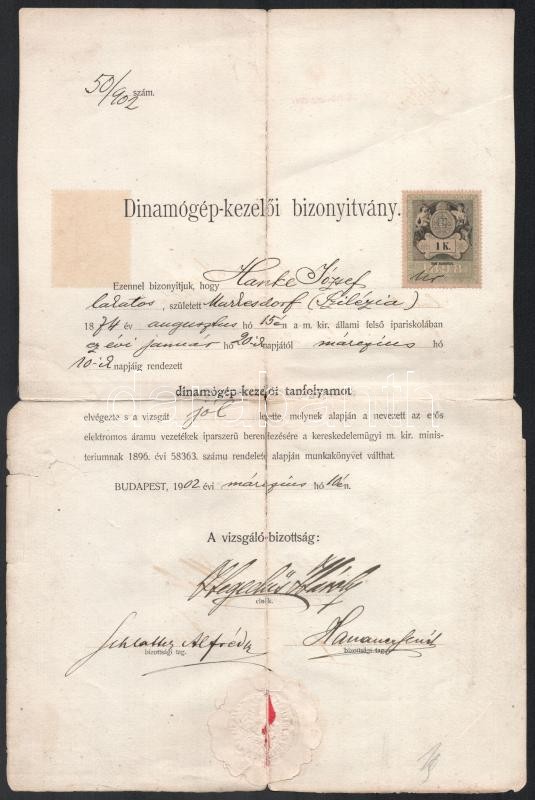 50/902 szám.
Dinamógép-kezelői bizonyitvány.
1 K.
1898
Ezennel bizonyitjuk, hogy Hanke József
lakatos, született Markesdorf (Szilézia)
1874 év augusztus hó 15én a m. kir. állami felső ipariskolában
ez évi január hó 20-ik napjától márczius hó
10-ik napjáig rendezett
dinamógép-kezelői tanfolyamot
elvégezte s a vizsgát jól letette, melynek alapján a nevezett az erős
elektromos áramu vezetékek iparszerü berendezésére a kereskedelemügyi m. kir. minis-
teriumnak 1896. évi 58363. számu rendelete alapján munkakönyvet válthat.
BUDAPEST, 1902 évi márczius hó 10én.
A vizsgáló-bizottság:
Hegedűs Károly
elnök.
Schlattky Alfréd
bizottsági tag.
bizottsági tag.